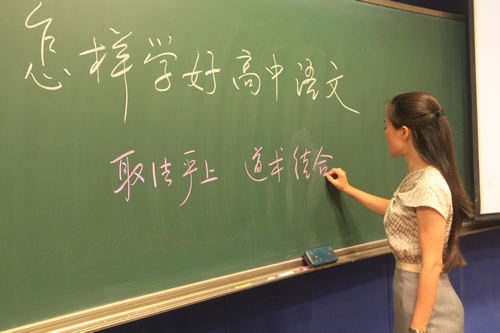 怎样学好高中语文
取法乎上 道术结合